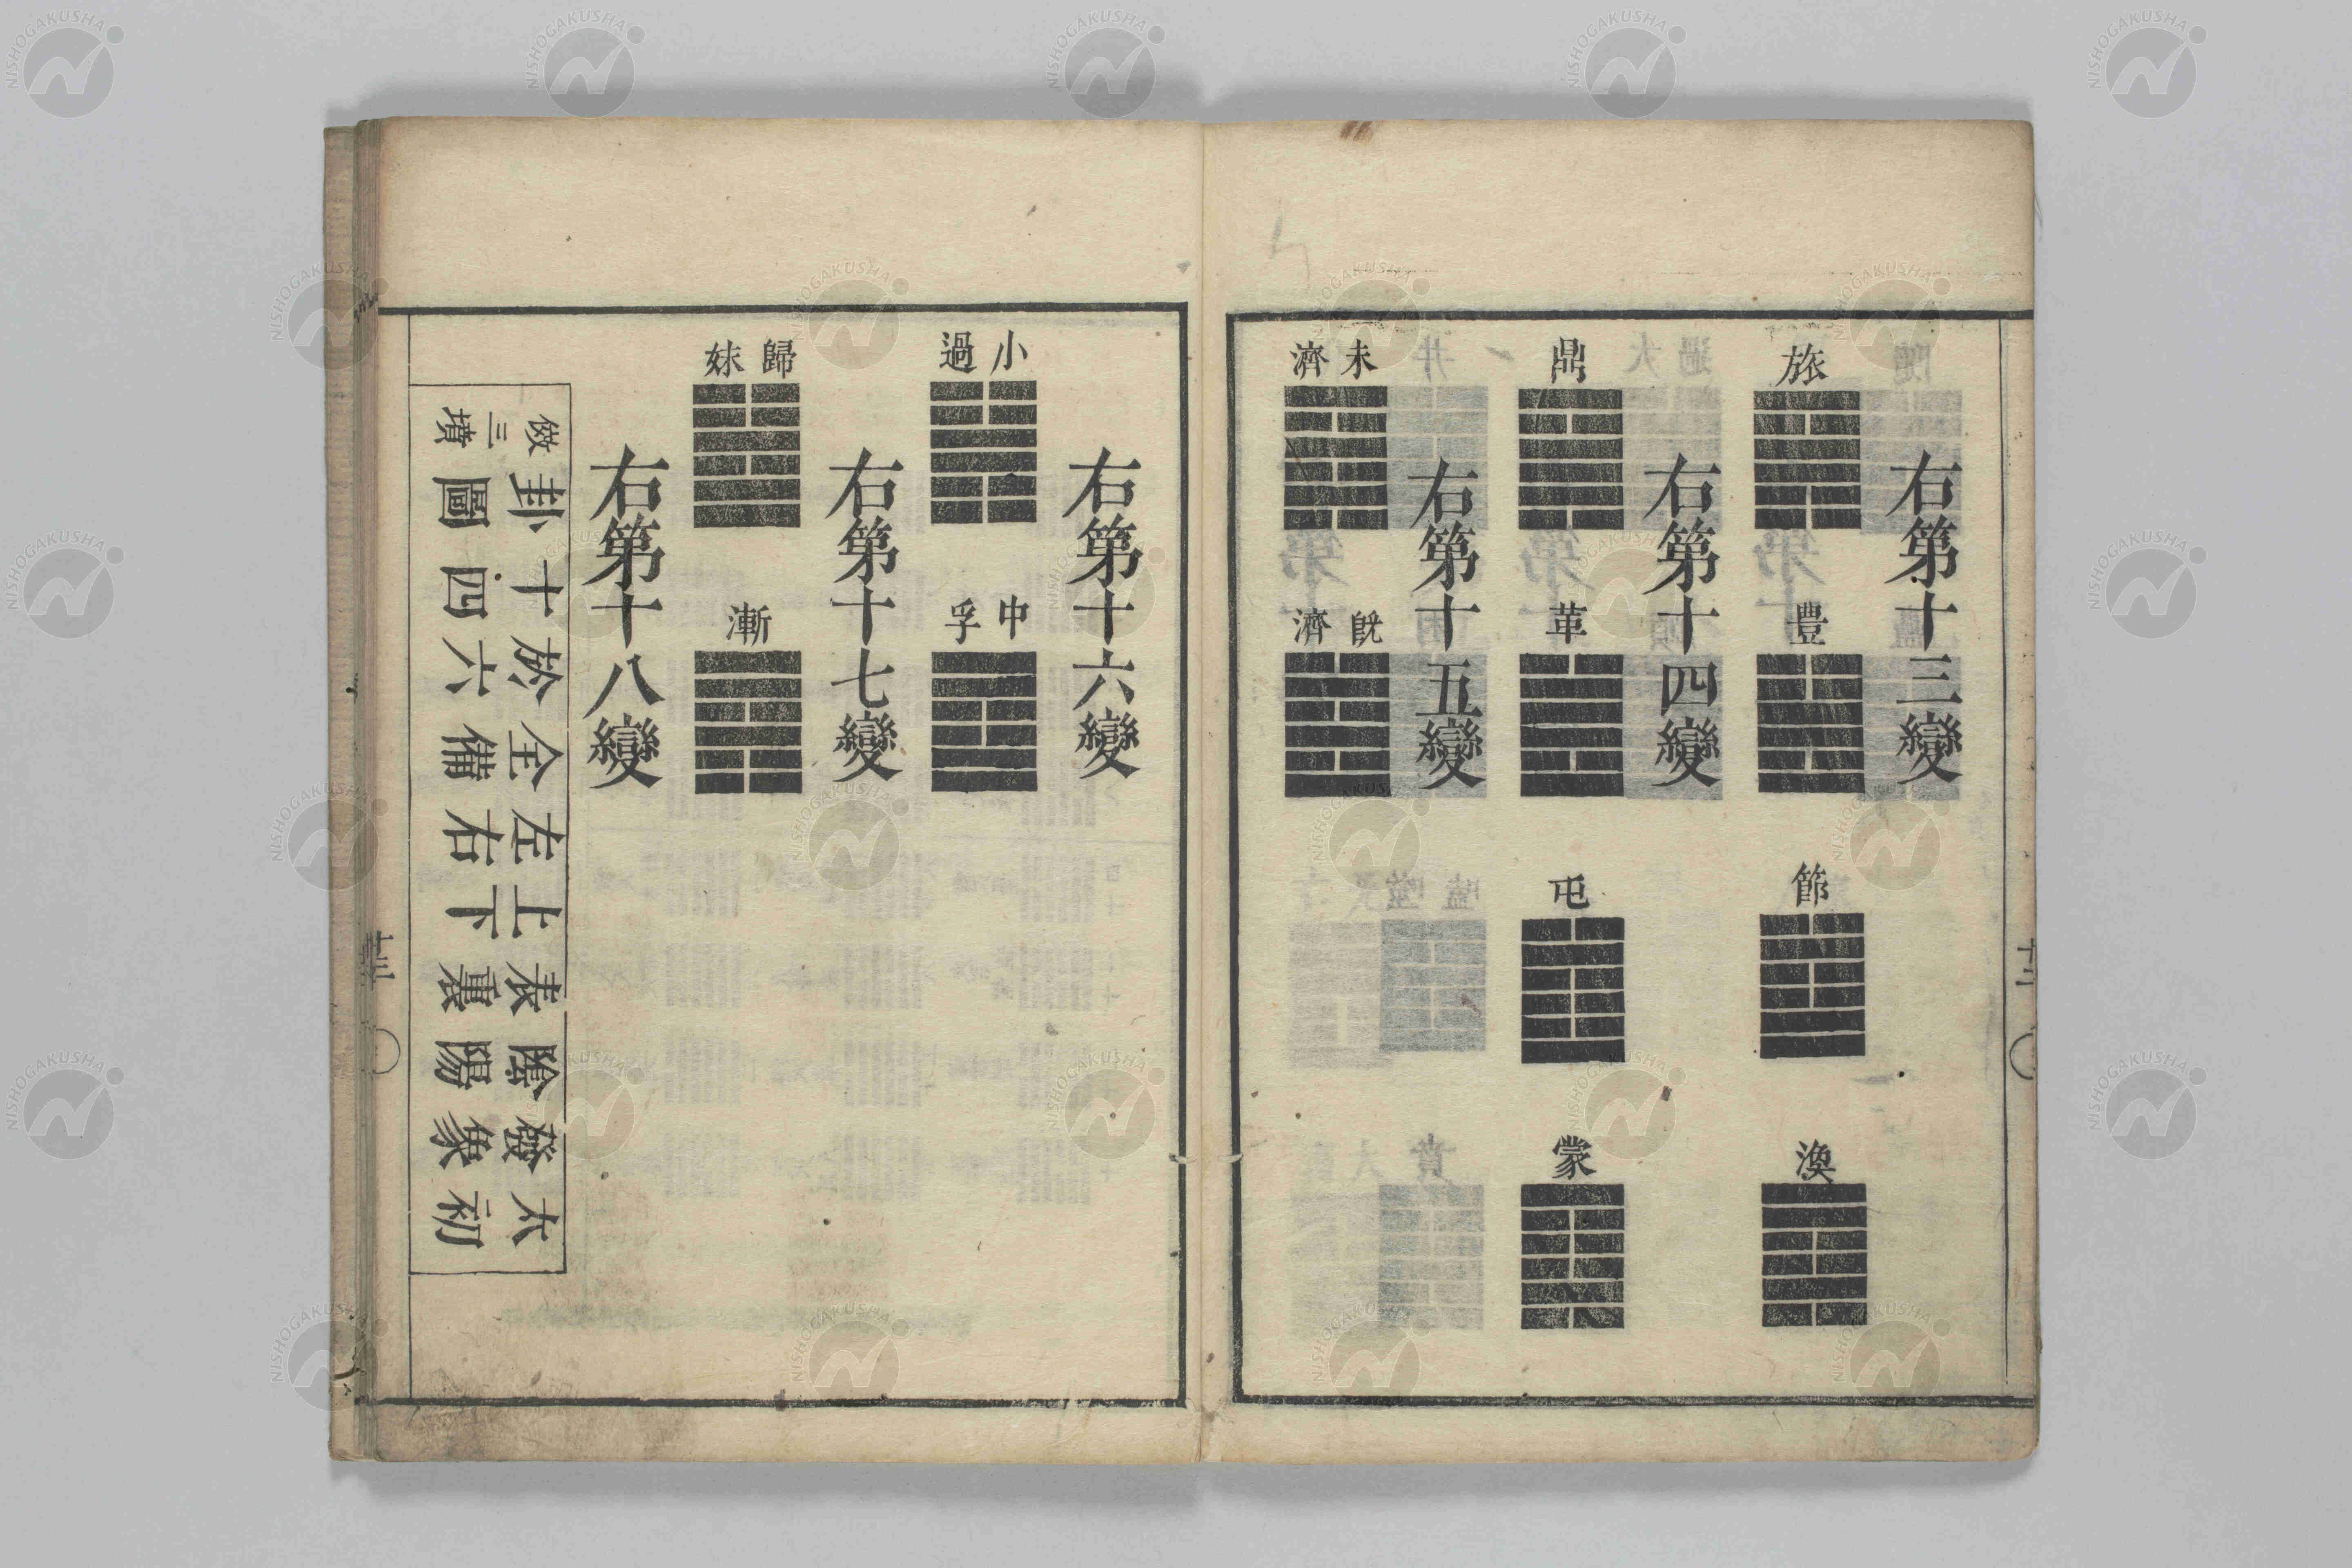 右第十三變
旅 豐 節 渙
右第十四變
鼎 革 屯 蒙
右第十五變
未濟 既濟
右第十六變
小過 中孚
右第十七變
歸妹 漸
右第十八變
太初
發象
陰陽
表裏
上下
左右
全備
於六
十四
卦圖
倣三墳
NISHOGAKUSHA